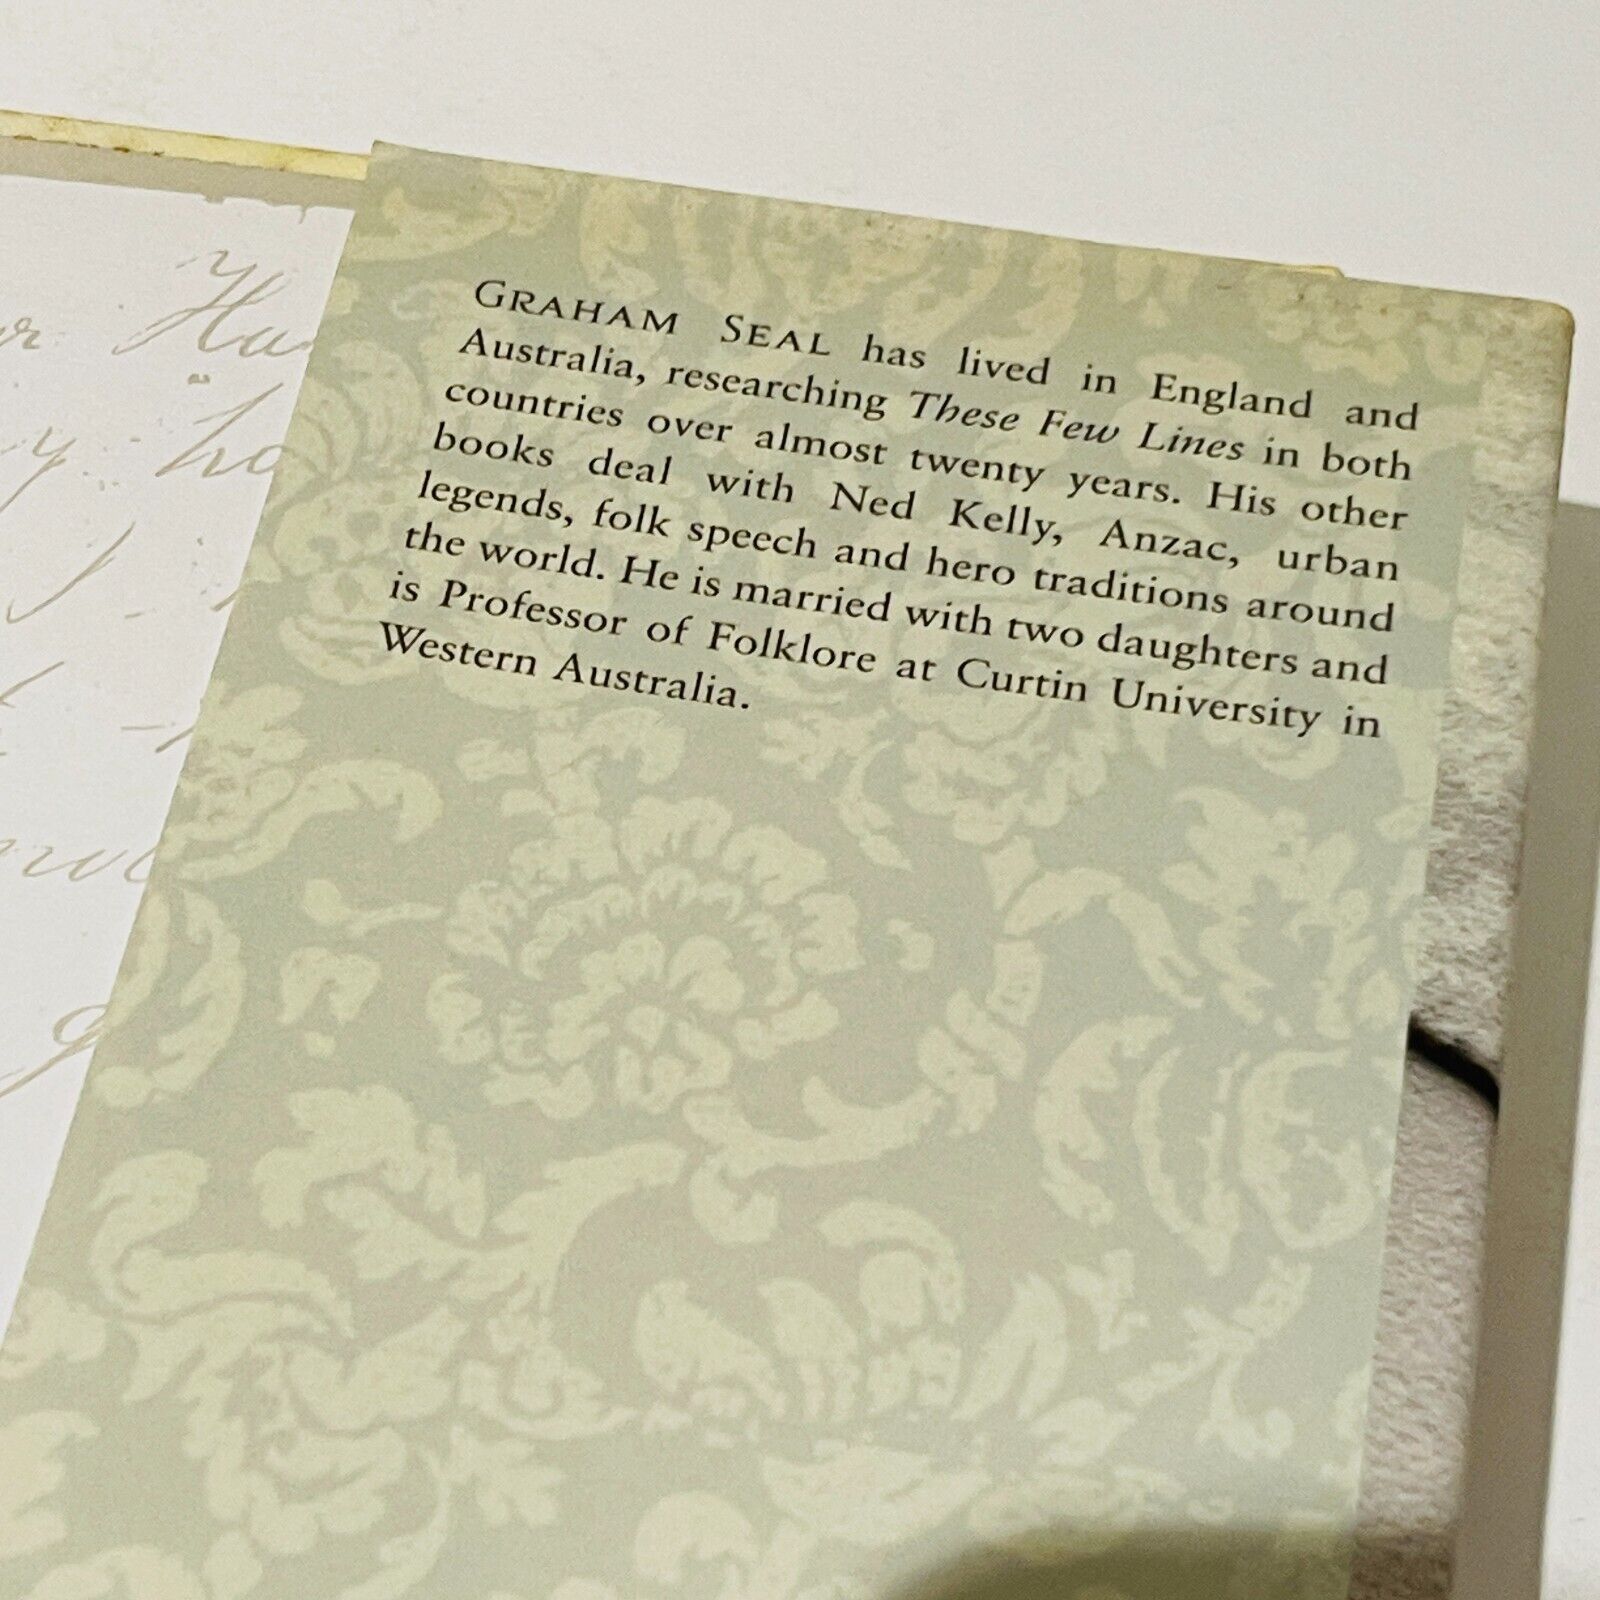 GRAHAM SEAL has lived in England and
Australia, researching These Few Lines in both
countries over almost twenty years. His other
books deal with Ned Kelly, Anzac, urban
legends, folk speech and hero traditions around
the world. He is married with two daughters and
is Professor of Folklore at Curtin University in
Western Australia.